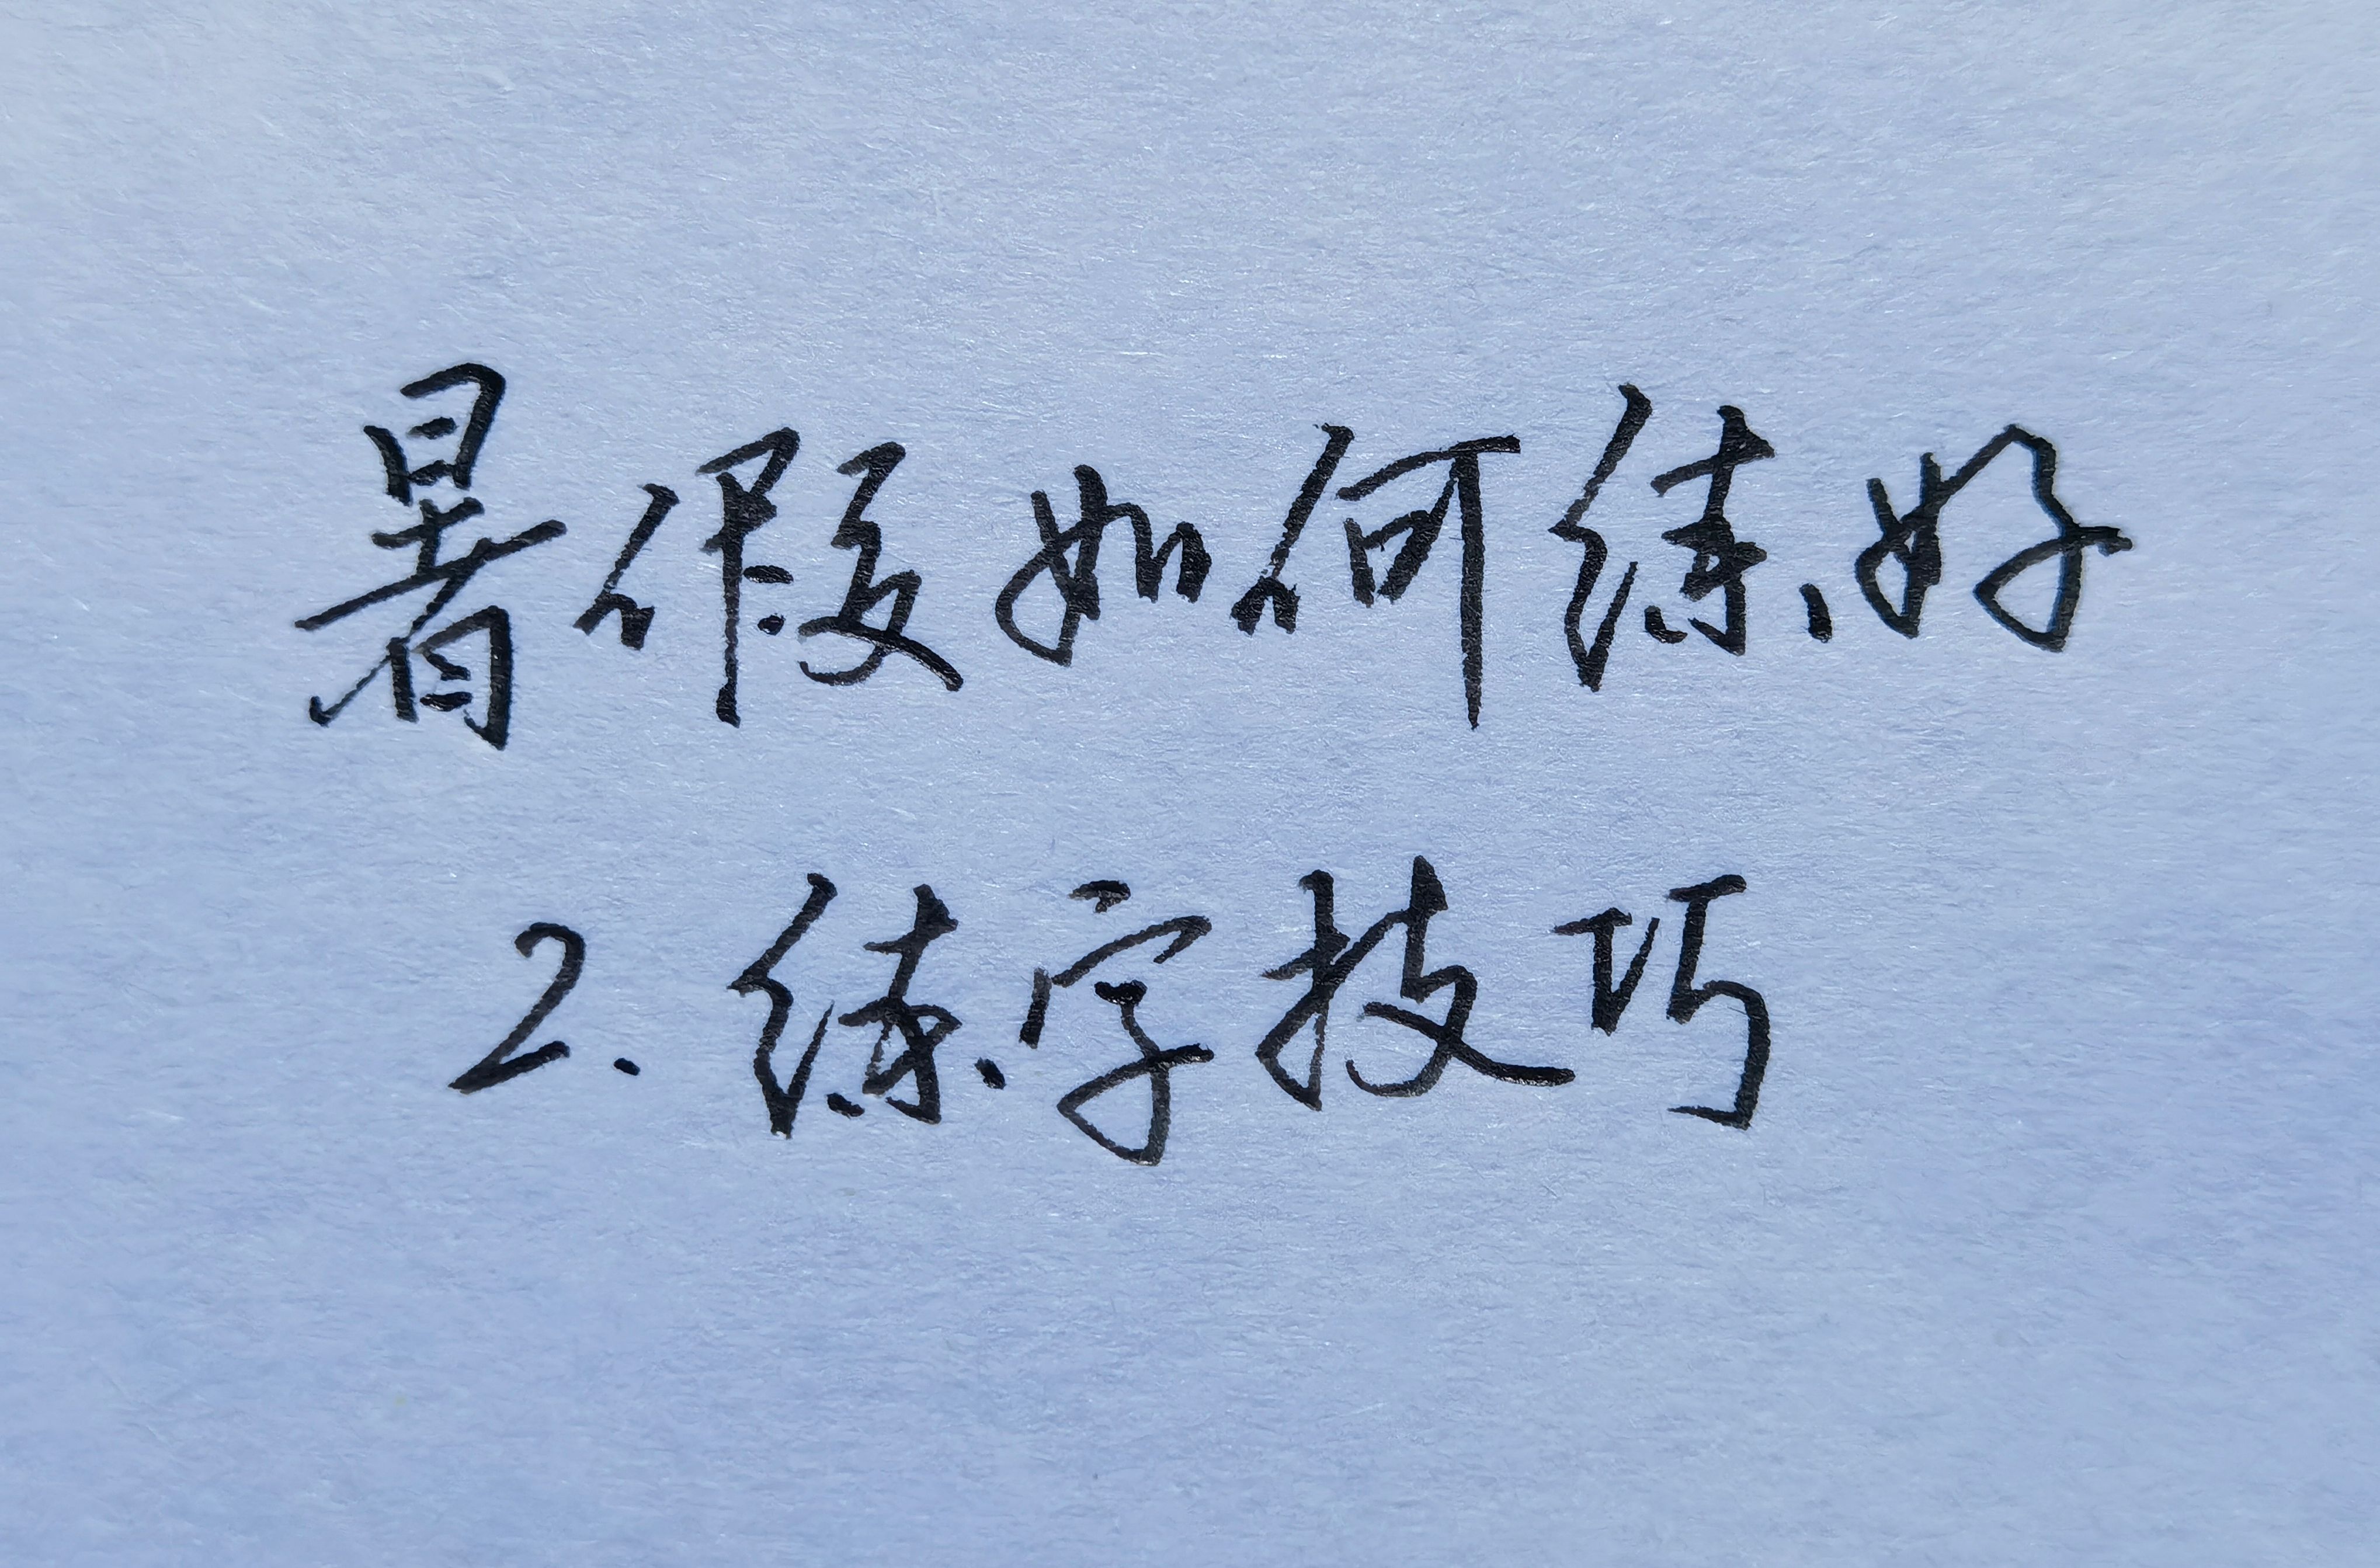 暑假如何练好
2.练字技巧